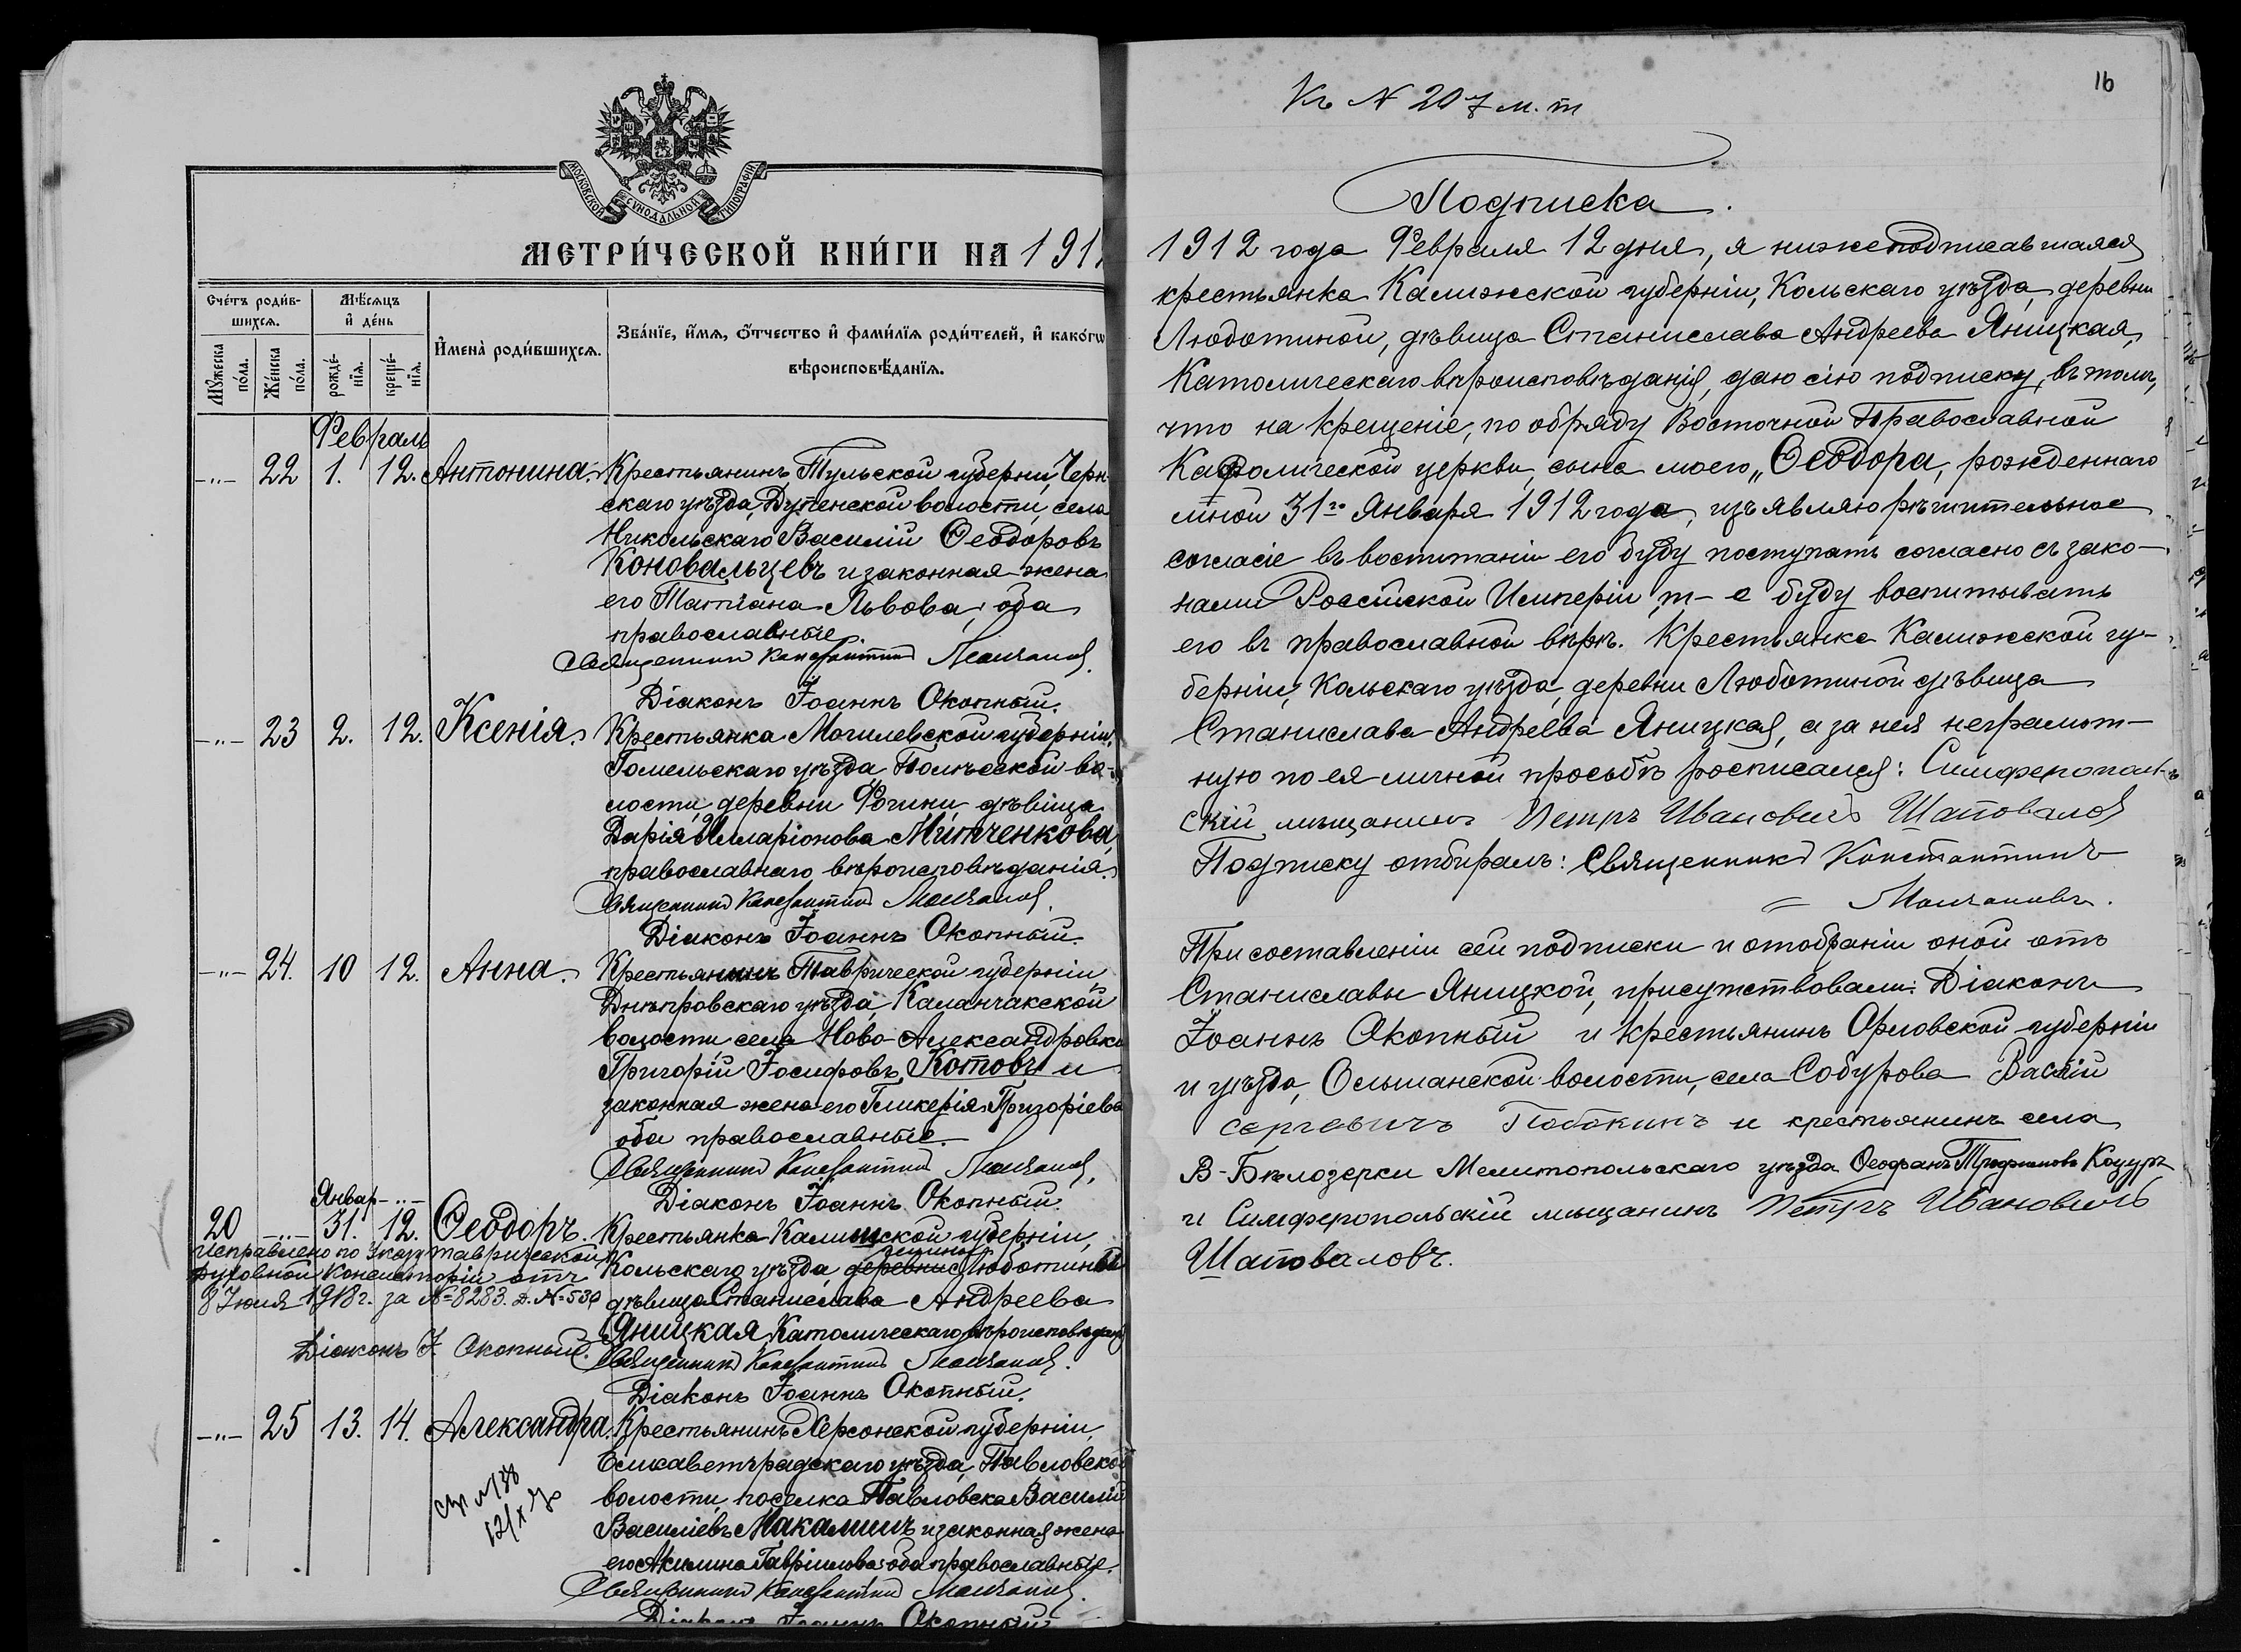 МОСКОВСКОЙ СѴНОДАЛЬНОЙ ТИПОГРАФІИ
МЕТРИ́ЧЕСКОЙ КНИ́ГИ НА 191
Сче́тъ роди́вшихсѧ.
Мѣ́сѧцъ и҆ де́нь
И҆мена̀ роди́вшихсѧ.
Зва́нїе, и҆́мѧ, ѻ҆́тчество и҆ фами́лїѧ роди́телей, и҆ како́гѡ
вѣроисповѣ́данїѧ.
Мꙋ́жеска по́ла.
Же́нска по́ла.
рожде́нїѧ.
креще́нїѧ.
Февраль
-"- 22 1. 12. Антонина. Крестьянинъ Тульской губерніи, Черн-
скаго уѣзда, Дупенской волости, села
Никольскаго Василій Ѳеодоровъ
Коновальцевъ и законная жена
его Татіана Львова, оба
православные.
Священникъ Константинъ Молчановъ.
Діаконъ Іоаннъ Окопный.
-"- 23 2. 12. Ксенія. Крестьянка Могилевской губерніи,
Гомельскаго уѣзда, Полѣсской во-
лости, деревни Фогини, дѣвица
Дарія Илларіонова Митченкова,
православнаго вѣроисповѣданія.
Священникъ Константинъ Молчановъ.
Діаконъ Іоаннъ Окопный.
-"- 24. 10 12. Анна. Крестьянинъ Таврической губерніи
Днѣпровскаго уѣзда, Каланчакской
волости, села Ново-Александровки
Григорій Іосифовъ Котовъ и
законная жена его Гликерія Григоріева
оба православные.
Священникъ Константинъ Молчановъ.
Діаконъ Іоаннъ Окопный.
Январ -"-
20 -"- 31. 12. Ѳеодоръ. Крестьянка Калишской губерніи,
Исправлено по Указу Таврической
духовной Консисторіи отъ
8 Іюля 1913 г. за №=8283. Д. №=530
Діаконъ І. Окопный.
Кольскаго уѣзда, деревни Люботины
дѣвица Станислава Андреева
Яницкая, Католическаго вѣроисповѣдан
Священникъ Константинъ Молчановъ.
Діаконъ Іоаннъ Окопный.
-"- 25 13. 14. Александра. Крестьянинъ Херсонской губерніи,
Елисаветградскаго уѣзда, Павловской
волости, поселка Павловска Василій
Василіевъ Макалишъ и законная жена
его Акилина Гавріилова оба православные.
Священникъ Константинъ Молчановъ.
Діаконъ Іоаннъ Окопный
16
Къ № 20 м. п
Подписка.
1912 года Февраля 12 дня, я нижеподписавшаяся
крестьянка Калижской губерніи, Кольскаго уѣзда, деревни
Люботиной, дѣвица Станислава Андреева Яницкая,
Католическаго вѣроисповѣданія, даю сію подписку, въ томъ,
что на крещеніе, по обряду Восточной Православной
Каѳолической церкви, сына моего „Ѳеодора, рожденнаго
мной 31го Января 1912 года, изъявляю рѣшительное
согласіе въ воспитаніи его буду поступать согласно съ зако-
нами Россійской Имперіи, т-е буду воспитывать
его въ православной вѣрѣ. Крестьянка Калижской гу-
берніи, Кольскаго уѣзда, деревни Люботиной дѣвица
Станислава Андреева Яницкая, а за нея неграмот-
ную по ея личной просьбѣ росписался: Симферополь-
скій мѣщанинъ Петръ Ивановичъ Шаповалов
Подписку отбиралъ: Священникъ Константинъ
Молчановъ.
При составленіи сей подписки и отобраніи оной отъ
Станиславы Яницкой, присутствовали: Діаконъ
Іоаннъ Окопный и крестьянинъ Орловской губерніи
и уѣзда, Ольшанской волости, села Собурова Васлій
Сергевичъ и крестьянинъ села
В-Бѣлозерки Мелитопольскаго уѣзда Ѳеофанъ Трофимовъ Коцуръ
и Симферопольскій мѣщанинъ Петръ Ивановичъ
Шаповаловъ.